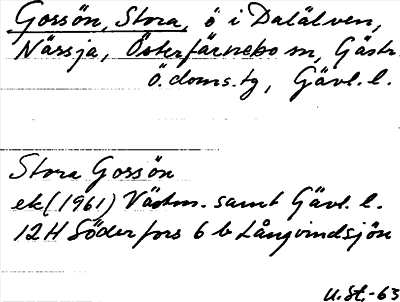 Gossön, Stora, ö i Dalälven,
Närsja, Österfärnebo sn, Gästr.
ö. doms.tg, Gävl. l.
Stora Gossön
ek (1961) Västm. samt Gävl. l.
12H Söderfors 6 b Långvindsjön
U.St.-63